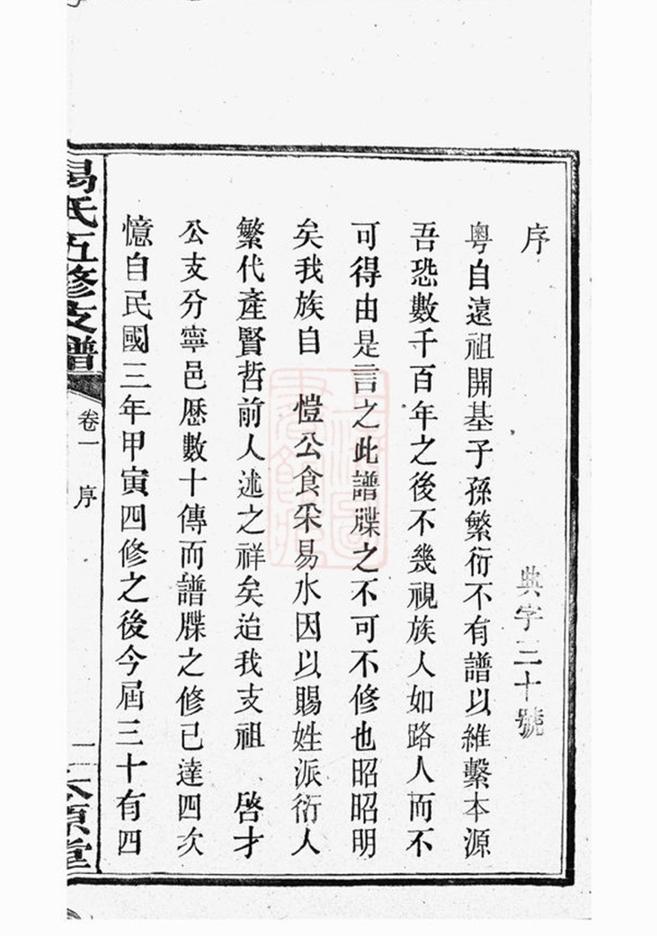 序
典字三十號
粵自遠祖開基子孫繁衍不有譜以維繫本源
吾恐數千百年之後不幾視族人如路人而不
可得由是言之此譜牒之不可不修也昭昭明
矣我族自 愷公食采易水因以賜姓派衍人
繁代產賢哲前人述之祥矣迨我支祖 啓才
公支分寧邑歷數十傳而譜牒之修已達四次
憶自民國三年甲寅四修之後今屆三十有四
易氏五修支譜
卷一 序
一
太原堂